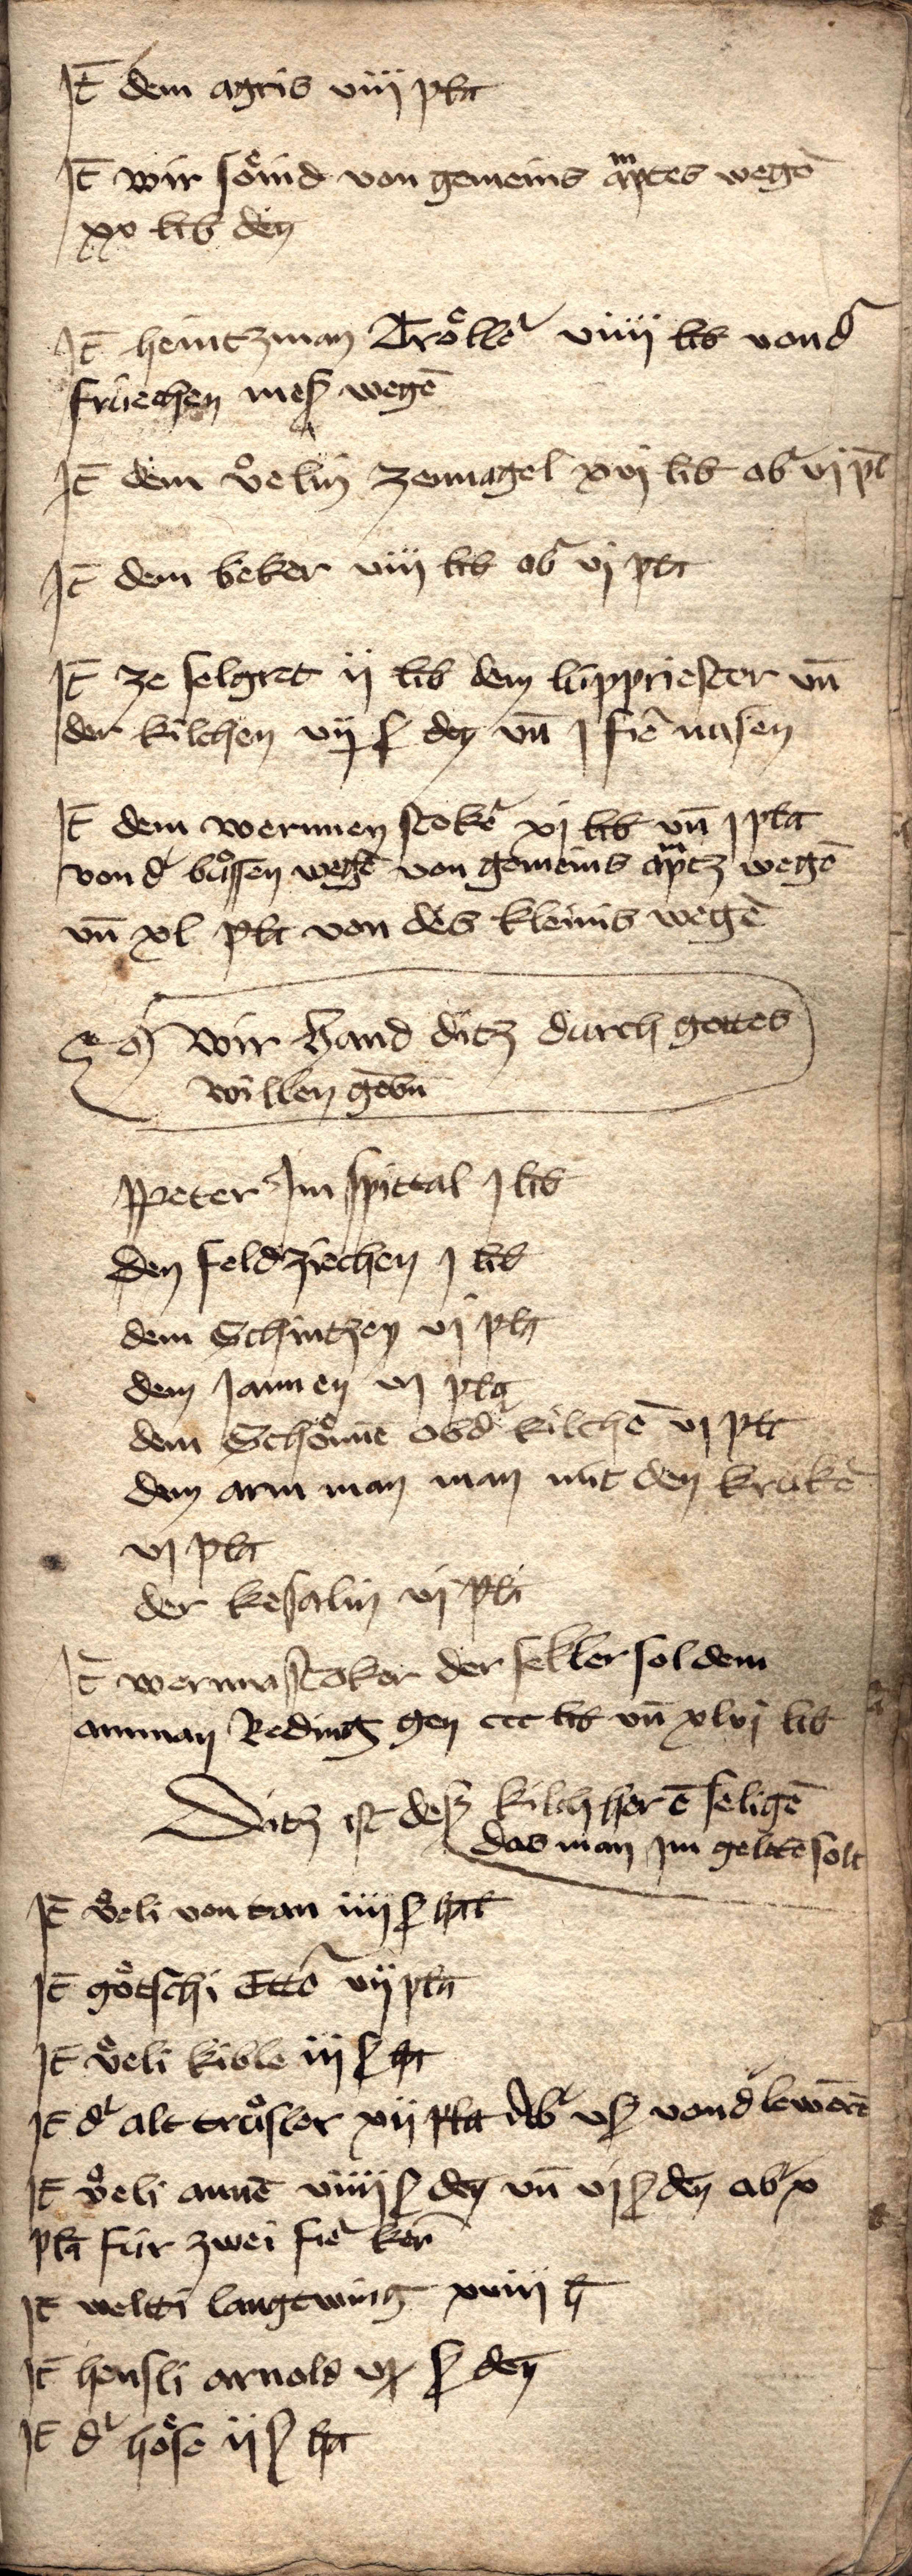 It dem agtis viij pla
It wir söind von gemeins amptes wegē
xx lib den
It heintzman Tröller viiij lib von d
früechen mess wegē
It dem vͦelin zennagel xvj lib ab vj pl
It dem beker viij lib ab vj pla
It ze selgret ij lib dem lüppriester vn̄
der kilchen vij ß den vn̄ j fiē nasen
It dem wernney stokē xj lib vn̄ j pla
von d büssen wegē von gemeins amptz wegē
vn̄ xl pla von des kleinis wegē
wir hand ditz durch gottes
willen gebn̄
Peter Im spittal j lib
den feldziechen j lib
dem Schintzen vj pla
dem Jannen vj pla
dem Schönnē ob d kilchē vj pla
dem arm man man mit den krukē
vj pla
der kesalin vj pla
It wernna stoker der sekler sol dem
amman Reding gen ccc lib vn̄ xlvj lib
Ditz ist dess kilchherē seligē
das man im geltē solt
It vͦeli von tan iiij ß hlr
It götschi Etto vij pla
It vͦeli kible iij ß
It d alt trösler xij pla ab v ß von d
It vͦeli annē viiij ß den vn̄ vj ß den ab x
pla für zwei fiē kern
It welti langtwing xviij ß
It hensli arnold vj ß den
It d höse ij ß